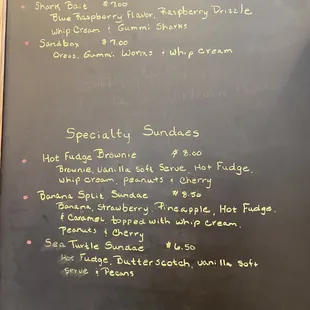 Shark Bait $7.00
Blue Raspberry Flavor, Raspberry Drizzle
Whip Cream & Gummi Sharks
Sandbox $7.00
Oreos, Gummi Worms & Whip Cream
Specialty Sundaes
Hot Fudge Brownie $8.00
Brownie, Vanilla Soft Serve, Hot Fudge,
Whip cream, peanuts & Cherry
Banana Split Sundae $8.50
Banana, Strawberry, Pineapple, Hot Fudge,
& Caramel topped with whip cream,
Peanuts & Cherry
Sea Turtle Sundae $6.50
Hot Fudge, Butterscotch, Vanilla Soft
Serve & Pecans